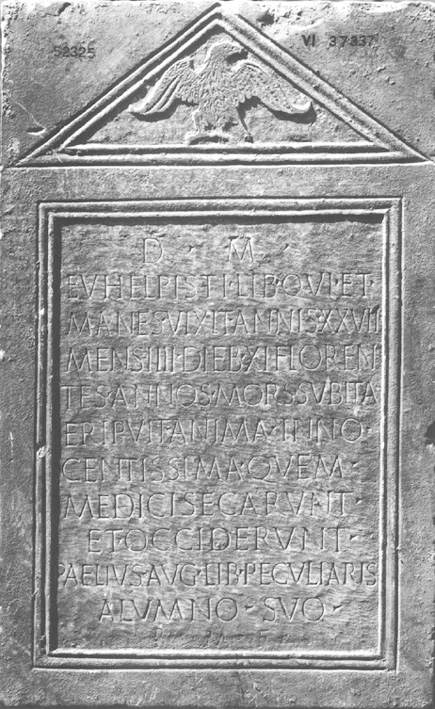 52325
VI 37337
D · M
EVHELPISTI·LIB·QVI·ET·
MANES·VIXIT·ANNIS·XXVII
MENS·IIII·DIEB·XI·FLOREN
TES·ANNOS·MORS·SVBITA
ERIPVIT·ANIMA·INNO·
CENTISSIMA·QVEM·
MEDICI·SECARVNT·
ET·OCCIDERVNT·
P·AELIVS·AVG·LIB·PECVLIARIS
ALVMNO·SVO·